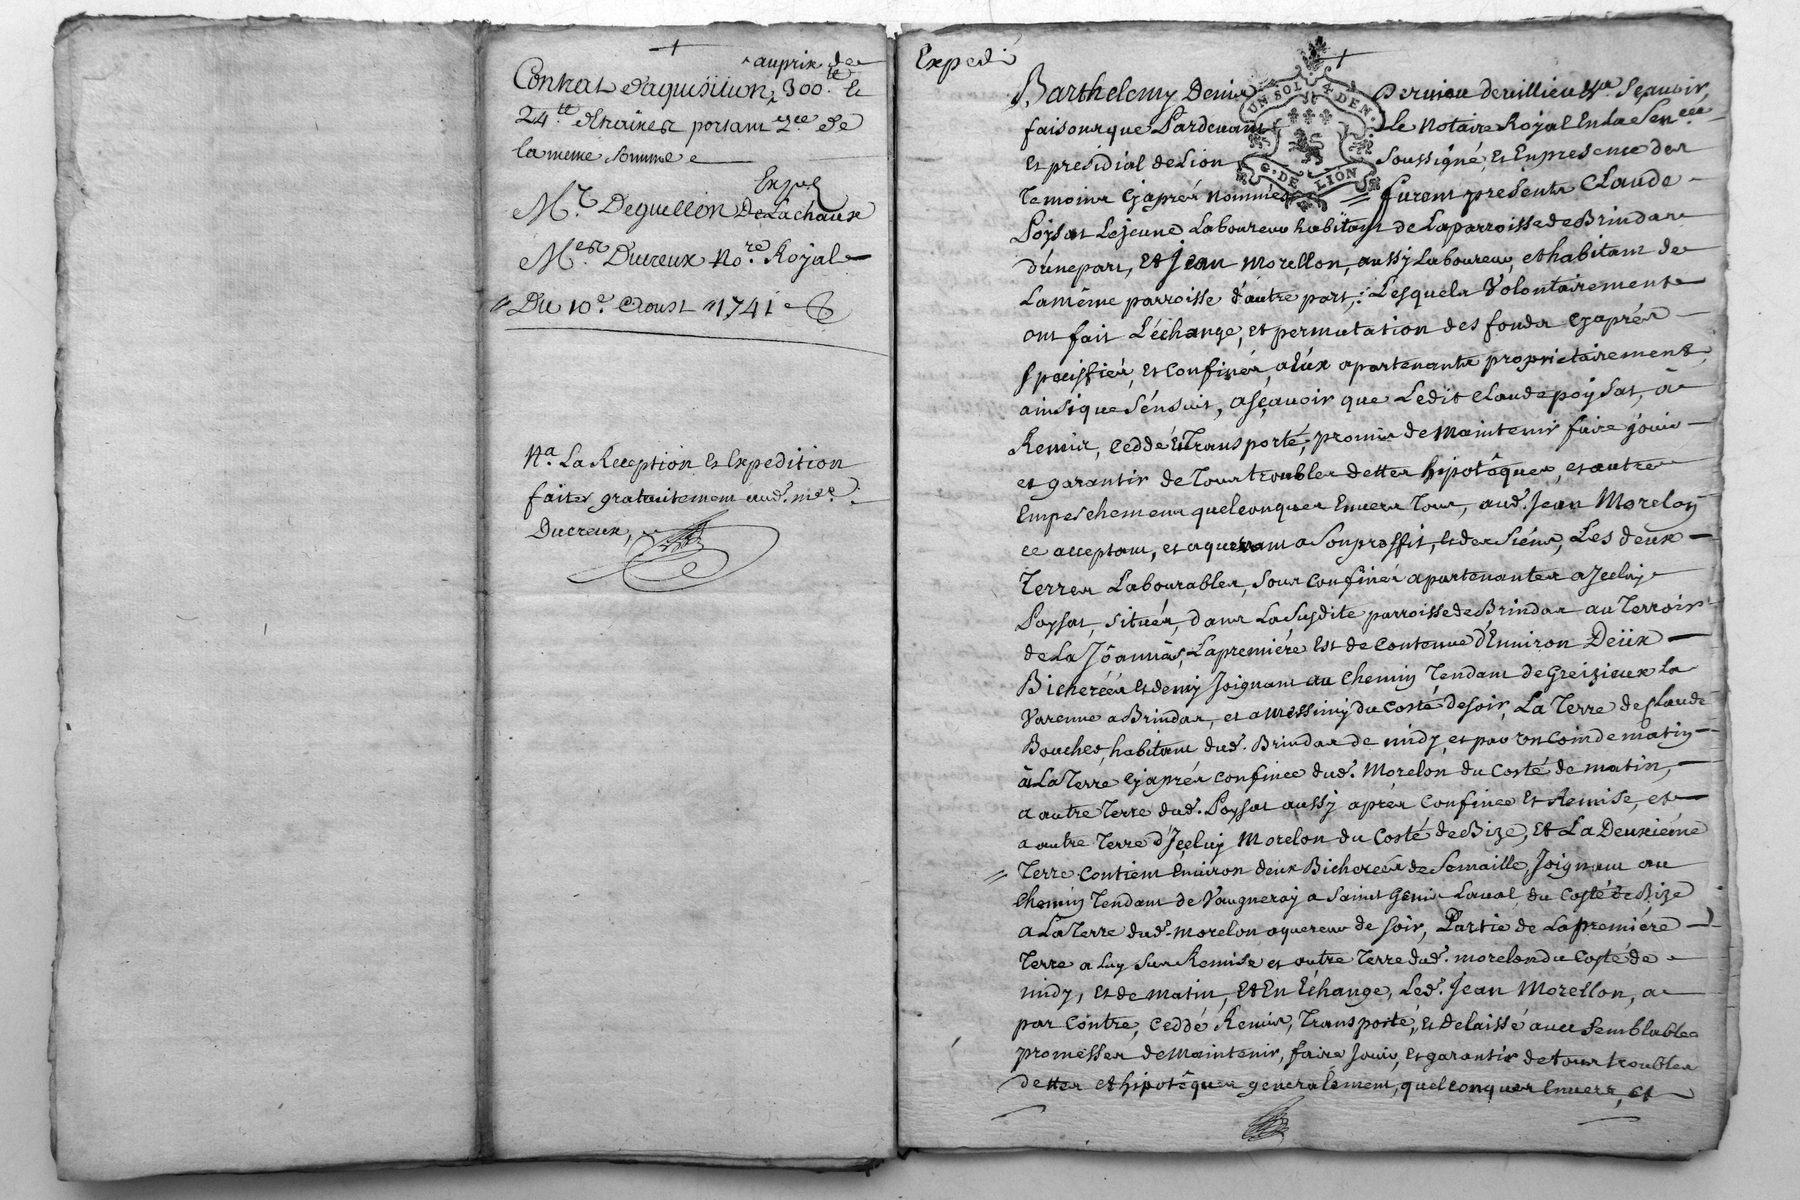 au prix de
Contrat d'aquisition, 300.tt et
24.tt d'etraines portant q.ce de
la meme somme
Exped
M.r Deguellon De Lachaux
M.es Ducreux No.re Royal
Du 10.e Aoust 1741
N.a La Reception et Expedition
faites gratuitement aud. m.e
Ducreux,
Expedi
Barthelemy Denis Dervieu devillieu Sçavoir
UN SOL 4 DEN.
G. DE LION
faisons que Pardevant Le Notaire Royal En La Sen.cée
Et presidial de Lion Soussigné, Et En presence des
Temoins Cyaprés nommés furent presents Claude
Poysat Lejeune Laboureur habitant de La parroisse de Brindas
d'une part, Et Jean Morellon, aussy Laboureur, et habitant de
La même parroisse d'autre part, Lesquels Volontairement
ont fait L'échange, et permutation des fonds Cyaprés
specifiés, et Confinés, a Eux apartenants proprietairement,
ainsi que s'ensuit, asçavoir que Ledit Claude poysat, a
Remis, Ceddé Et Transporté, promis de Maintenir faire jouir
et garantir de Tous troubles dettes hipotêques, et autres
Empeschements quelconques Envers Tous, aud. Jean Morelon
ce acceptant, et aquerant a Son proffit, et des Siens, Les deux
Terres Labourables, Sous Confinés apartenantes a Jceluy
Poysat, situées, dans La Susdite parroisse de Brindas au Terroir
de La Jôannas, La premiére Est de Contenue d'Environ Deüx
Bicherées Et demy Joignant au Chemin Tendant de Greizieux La
Varenne a Brindas, et a Messimy du Costé de soir, La Terre de Claude
Bouchet, habitant dud. Brindas de midy, et par un coin de matin
à La Terre Cyaprés Confinée dud. Morelon du Costé de matin,
a autre Terre dud. Poysat aussy aprés Confinée Et Remise, et
a autre Terre d'Jceluy Morelon du Costé de Bize, Et La Deuxiéme
Terre Contient Environ deux Bicherées de Semaille, Joignant au
Chemin Tendant de Vaugneray a Saint Genis Laval, du Costé de Bize
a La Terre dud. Morelon aquereur de soir, Partie de La premiére
Terre a Luy Sus Remise et autre Terre dud. morelon du Costé de
midy, Et de Matin, Et En Echange, Led. Jean Morellon, a
par Contre, Ceddé Remis, Transporté, Et Delaissé avec Semblables
promesses de Maintenir, faire Jouir, Et garantir de tous troubles
dettes et hipotêques generalement, quelconques Envers, Et